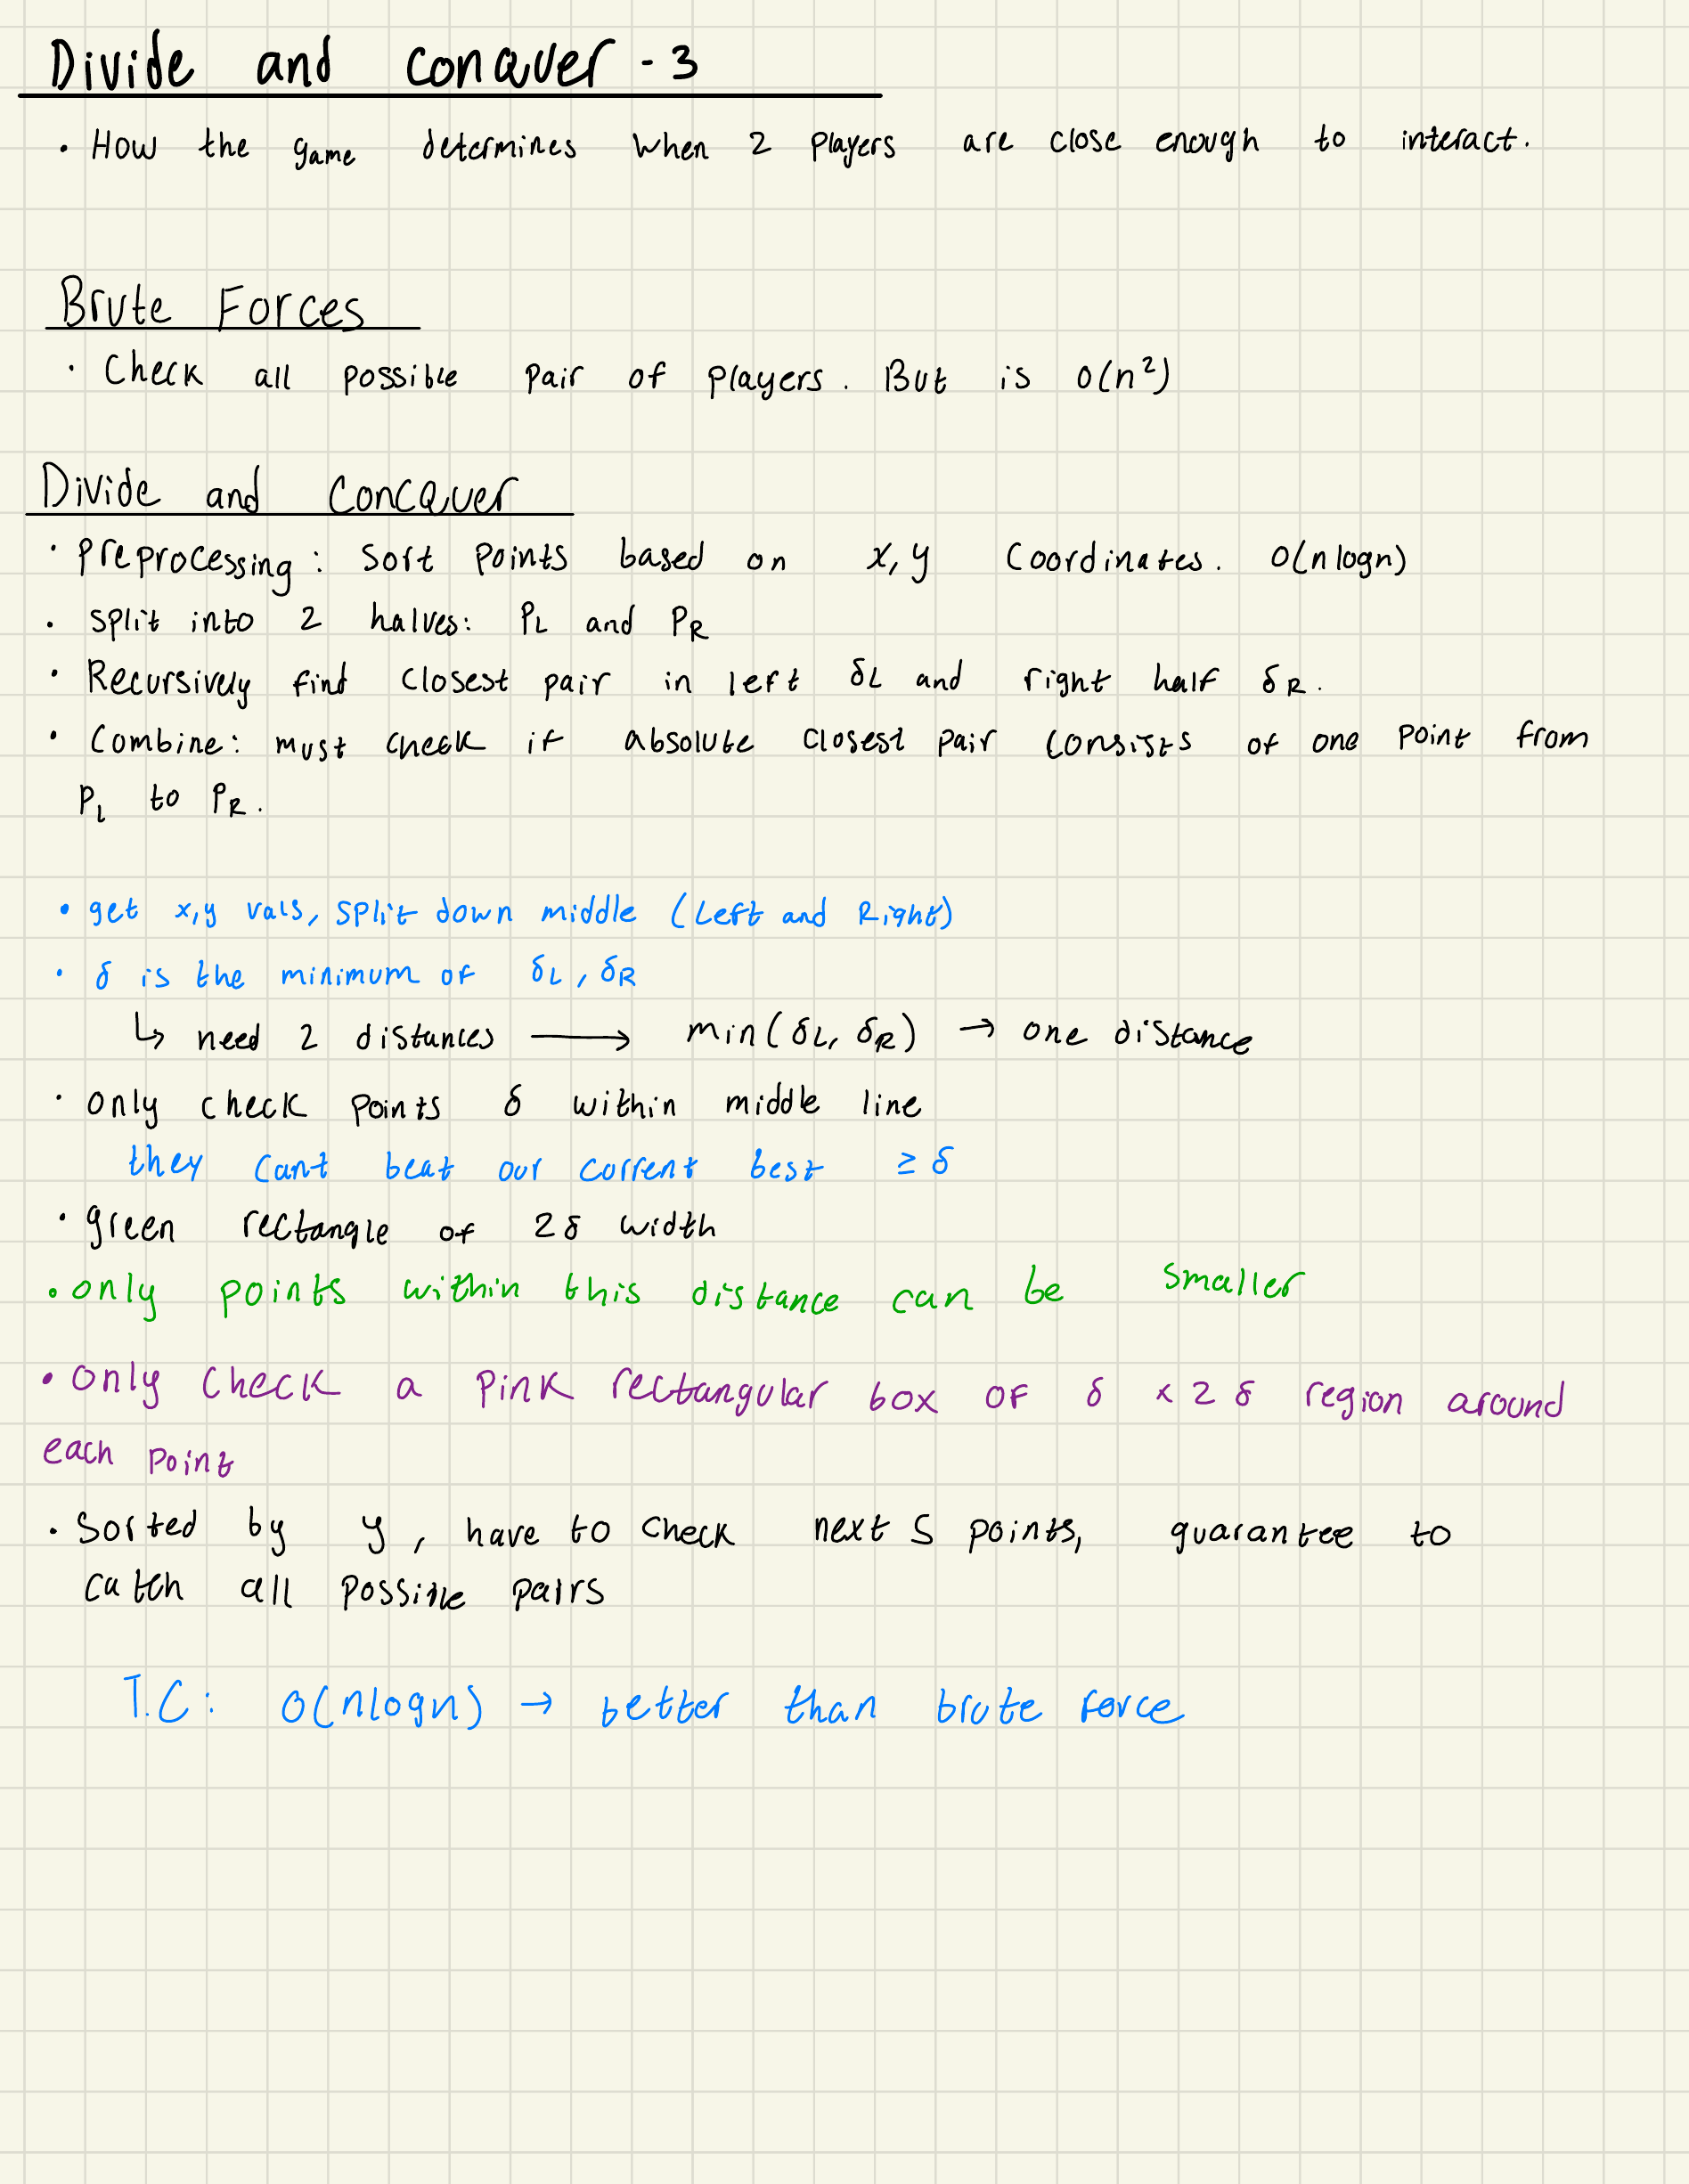 Divide and conquer - 3
• How the game determines when 2 players are close enough to interact.
Brute Forces
• Check all possible pair of players. But is O(n²)
Divide and Concquer
• preprocessing: sort points based on x,y coordinates. O(nlogn)
• split into 2 halves: PL and PR
• Recursively find closest pair in left δL and right half δR.
• Combine: must check if absolute closest pair consists of one point from
PL to PR.
• get x,y vals, split down middle (Left and Right)
• δ is the minimum of δL, δR
↳ need 2 distances ⟶ min(δL, δR) → one distance
• only check points δ within middle line
they cant beat our current best ≥ δ
• green rectangle of 2δ width
• only points within this distance can be smaller
• only check a pink rectangular box of δ x 2δ region around
each point
• sorted by y, have to check next 5 points, guarantee to
catch all possible pairs
T.C: O(nlogn) → better than brute force